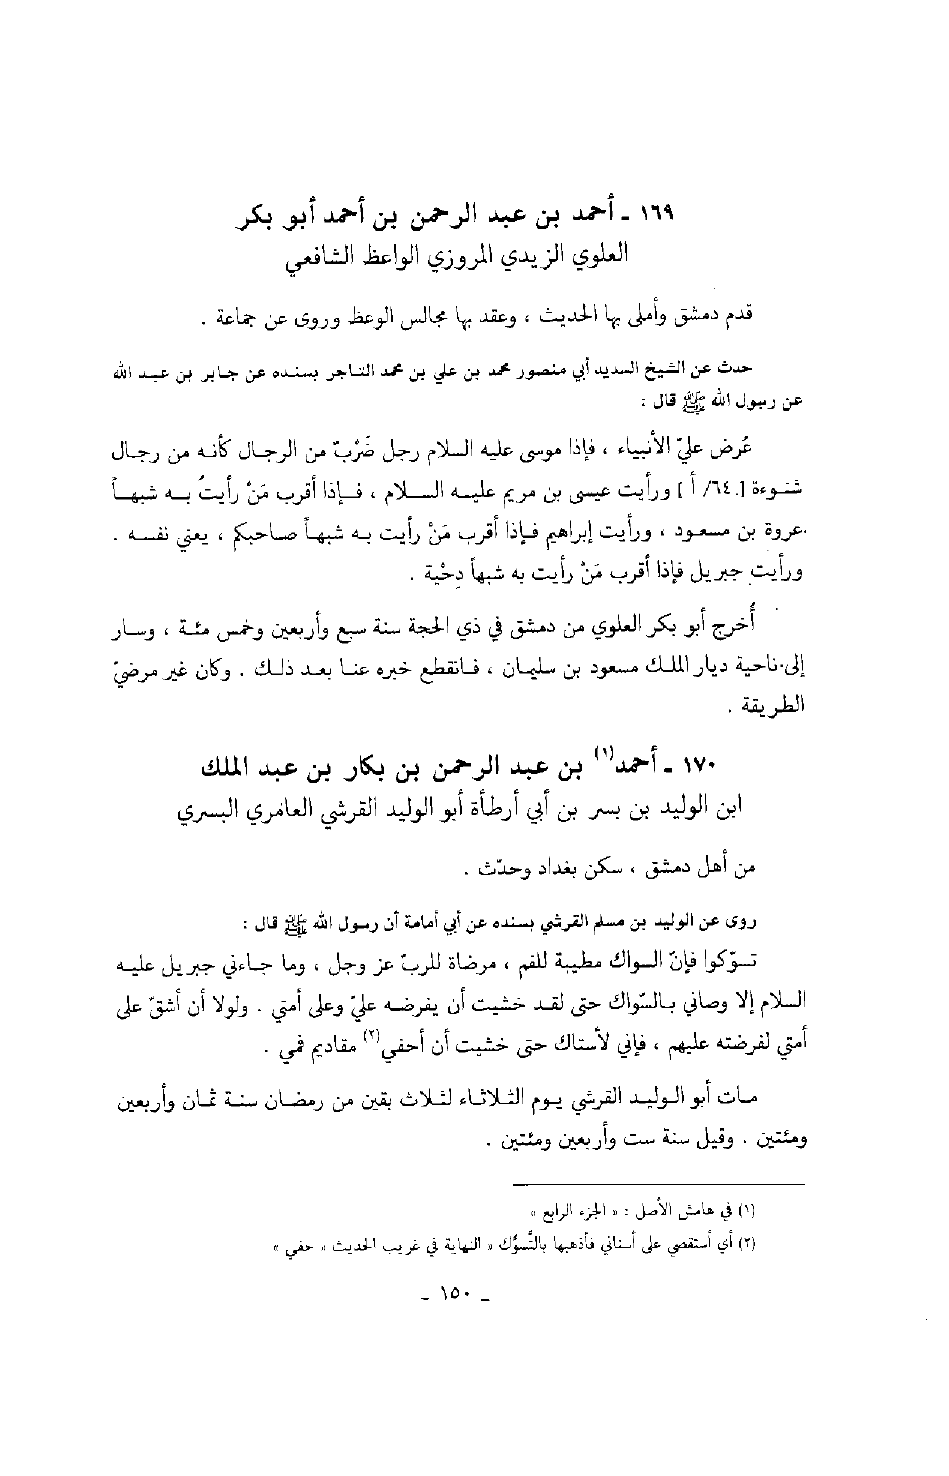 ١٦٩ ـ أحمد بن عبد الرحمن بن أحمد أبو بكر
العلوي الزيدي المروزي الواعظ الشافعي
قدم دمشق وأملى بها الحديث ، وعقد بها مجالس الوعظ وروى عن جماعة .
حدث عن الشيخ السديد أبي منصور محمد بن علي بن محمد التاجر بسنده عن جابر بن عبد الله
عن رسول الله ﷺ قال :
عُرض عليّ الأنبياء ، فإذا موسى عليه السلام رجل ضَرْبٌ من الرجال كأنه من رجال
شنوءة [ ٦٤/ أ ] ورأيت عيسى بن مريم عليه السلام ، فإذا أقرب مَنْ رأيتُ به شبهاً
عروة بن مسعود ، ورأيت إبراهيم فإذا أقرب مَنْ رأيت به شبهاً صاحبكم ، يعني نفسه .
ورأيت جبريل فإذا أقرب مَنْ رأيت به شبهاً دِحْية .
أُخرج أبو بكر العلوي من دمشق في ذي الحجة سنة سبع وأربعين وخمس مئة ، وسار
إلى ناحية ديار الملك مسعود بن سليمان ، فانقطع خبره عنا بعد ذلك . وكان غير مرضيّ
الطريقة .
١٧٠ ـ أحمد(١) بن عبد الرحمن بن بكار بن عبد الملك
ابن الوليد بن بسر بن أبي أرطأة أبو الوليد القرشي العامري البسري
من أهل دمشق ، سكن بغداد وحدّث .
روى عن الوليد بن مسلم القرشي بسنده عن أبي أمامة أن رسول الله ﷺ قال :
تسوّكوا فإنّ السواك مطيبة للفم ، مرضاة للربّ عز وجل ، وما جاءني جبريل عليه
السلام إلا وصاني بالسّواك حتى لقد خشيت أن يفرضه عليّ وعلى أمتي . ولولا أن أشقّ على
أمتي لفرضته عليهم ، فإني لأستاك حتى خشيت أن أحفي(٢) مقاديم فمي .
مات أبو الوليد القرشي يوم الثلاثاء لثلاث بقين من رمضان سنة ثمان وأربعين
ومئتين . وقيل سنة ست وأربعين ومئتين .
(١) في هامش الأصل : « الجزء الرابع »
(٢) أي أستقصي على أسناني فأذهبها بالتَّسوُّك « النهاية في غريب الحديث « حفي »
ـ ١٥٠ ـ